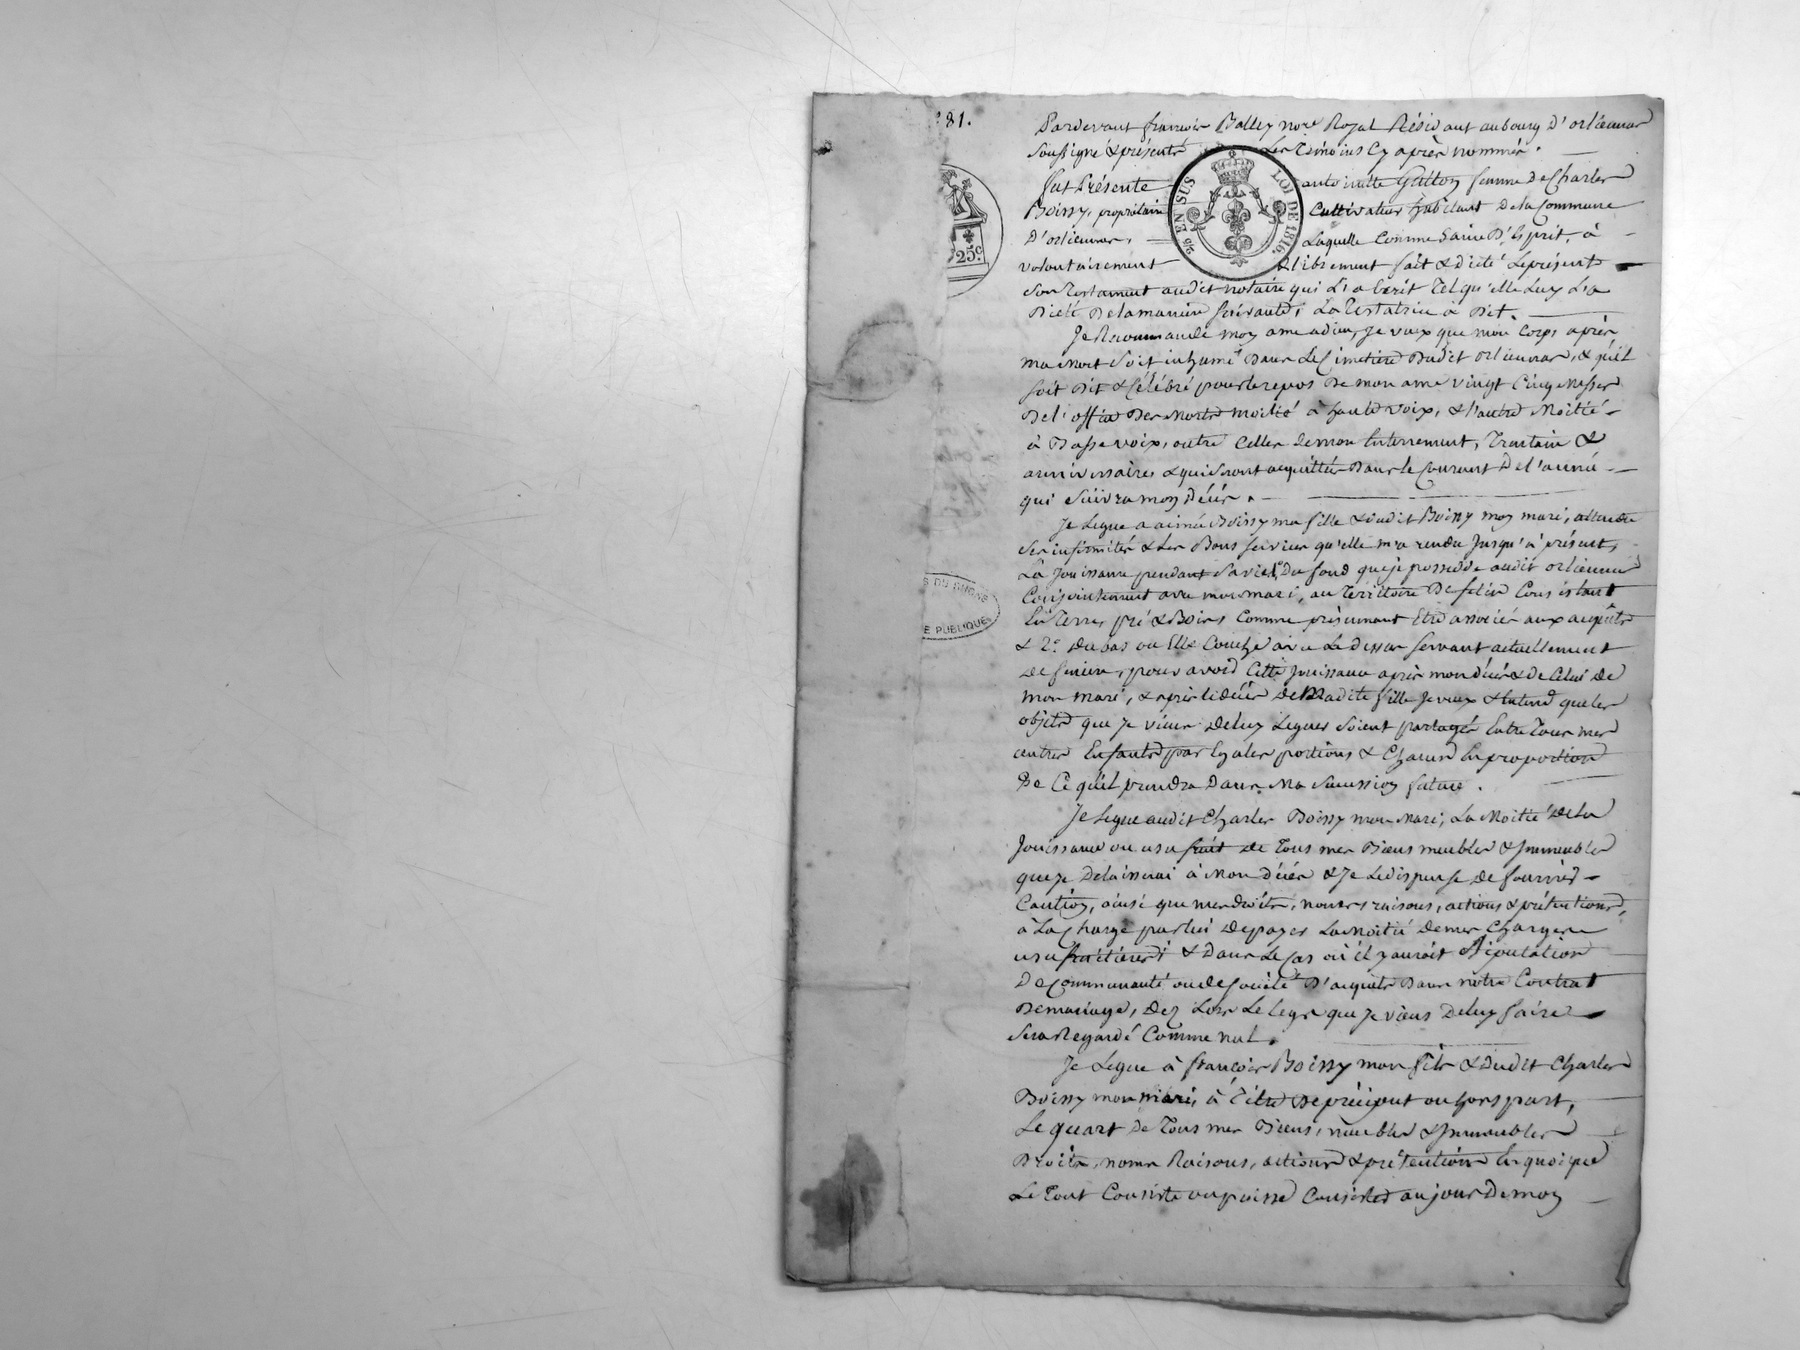 281.
Pardevant françois Balley nore Royal Résidant au bourg d'orlienas
soussigné & présents les Témoins Cy après nommés.
fut Présente antoinette Gutton femme de Charles
Boissy, propriétaire Cultivateur habitant de la Commune
D'orlienas, Laquelle Comme Saine D'Esprit, à
volontairement & librement fait & dicté Le présent
Son Testament audit notaire qui L'a Ecrit Tel qu'elle Luy L'a
Dicté De la maniere Suivante; La Testatrice à Dit.
Je Recommande mon ame a dieu, Je veux que mon Corps après
ma Mort Soit inhumé Dans Le Cimetiere Dudit orlienas, & qu'il
Soit Dit & Célébré pour le repos De mon ame vingt Cinq Messes
De l'office Des Morts moitié à haute voix, & l'autre Moitié
à Basse voix, outre Celles de mon Enterrement, Trentain &
anniversaires & qui Seront acquittés Dans le Courant De l'année
qui Suivra mon Décès.
Je Legue a aimée Boissy ma fille & dudit Boissy mon mari, attendu
Ses infirmités & Les Bons Services qu'elle m'a rendu Jusqu'à présent,
La Jouissance pendant Sa vie 1° Du fond que je possède audit orlienas
Conjointement avec mon mari, au Territoire De Consistant
En Terre, pré & Bois, Comme présumant Etre associés aux acquets
& 2° du bas ou Elle Couche avec Le dessus Servant actuellement
de feniere, pour avoir Cette Jouissance après mon décès & de Celui de
mon mari, & après le décès de Madite fille Je veux & Entend que les
objets que Je viens de luy Leguer Soient partagés Entre Tous mes
autres Enfants par Egales portions & Chacun En proportion
De Ce qu'il prendra Dans Ma Succession future.
Je Legue audit Charles Boissy mon Mari, La Moitié de la
Jouissance ou usufruit de Tous mes Biens meubles & Immeubles
que Je Delaisserai à Mon Décès & Je Le dispense de fournir
Caution, ainsi que mes droits, noms, raisons, actions & prétentions,
à La Charge par lui de payer La Moitié de mes Charges
usufruitieres; & Dans Le Cas où il y auroit Stipulation
De Communauté ou de Société D'acquets Dans notre Contrat
De mariage, Dez Lors Le Legs que Je viens De luy faire
Sera Regardé Comme nul.
Je Legue à françois Boissy mon fils & Dudit Charles
Boissy mon mari, à Titre de préciput ou hors part,
Le quart De Tous mes Biens, meubles & Immeubles
Droits, noms Raisons, actions & prétentions En quoi que
Le Tout Consiste ou puisse Consister au jour De mon
EN SUS
LOI DE 1816.
25c
S DU RHONE
E PUBLIQUE